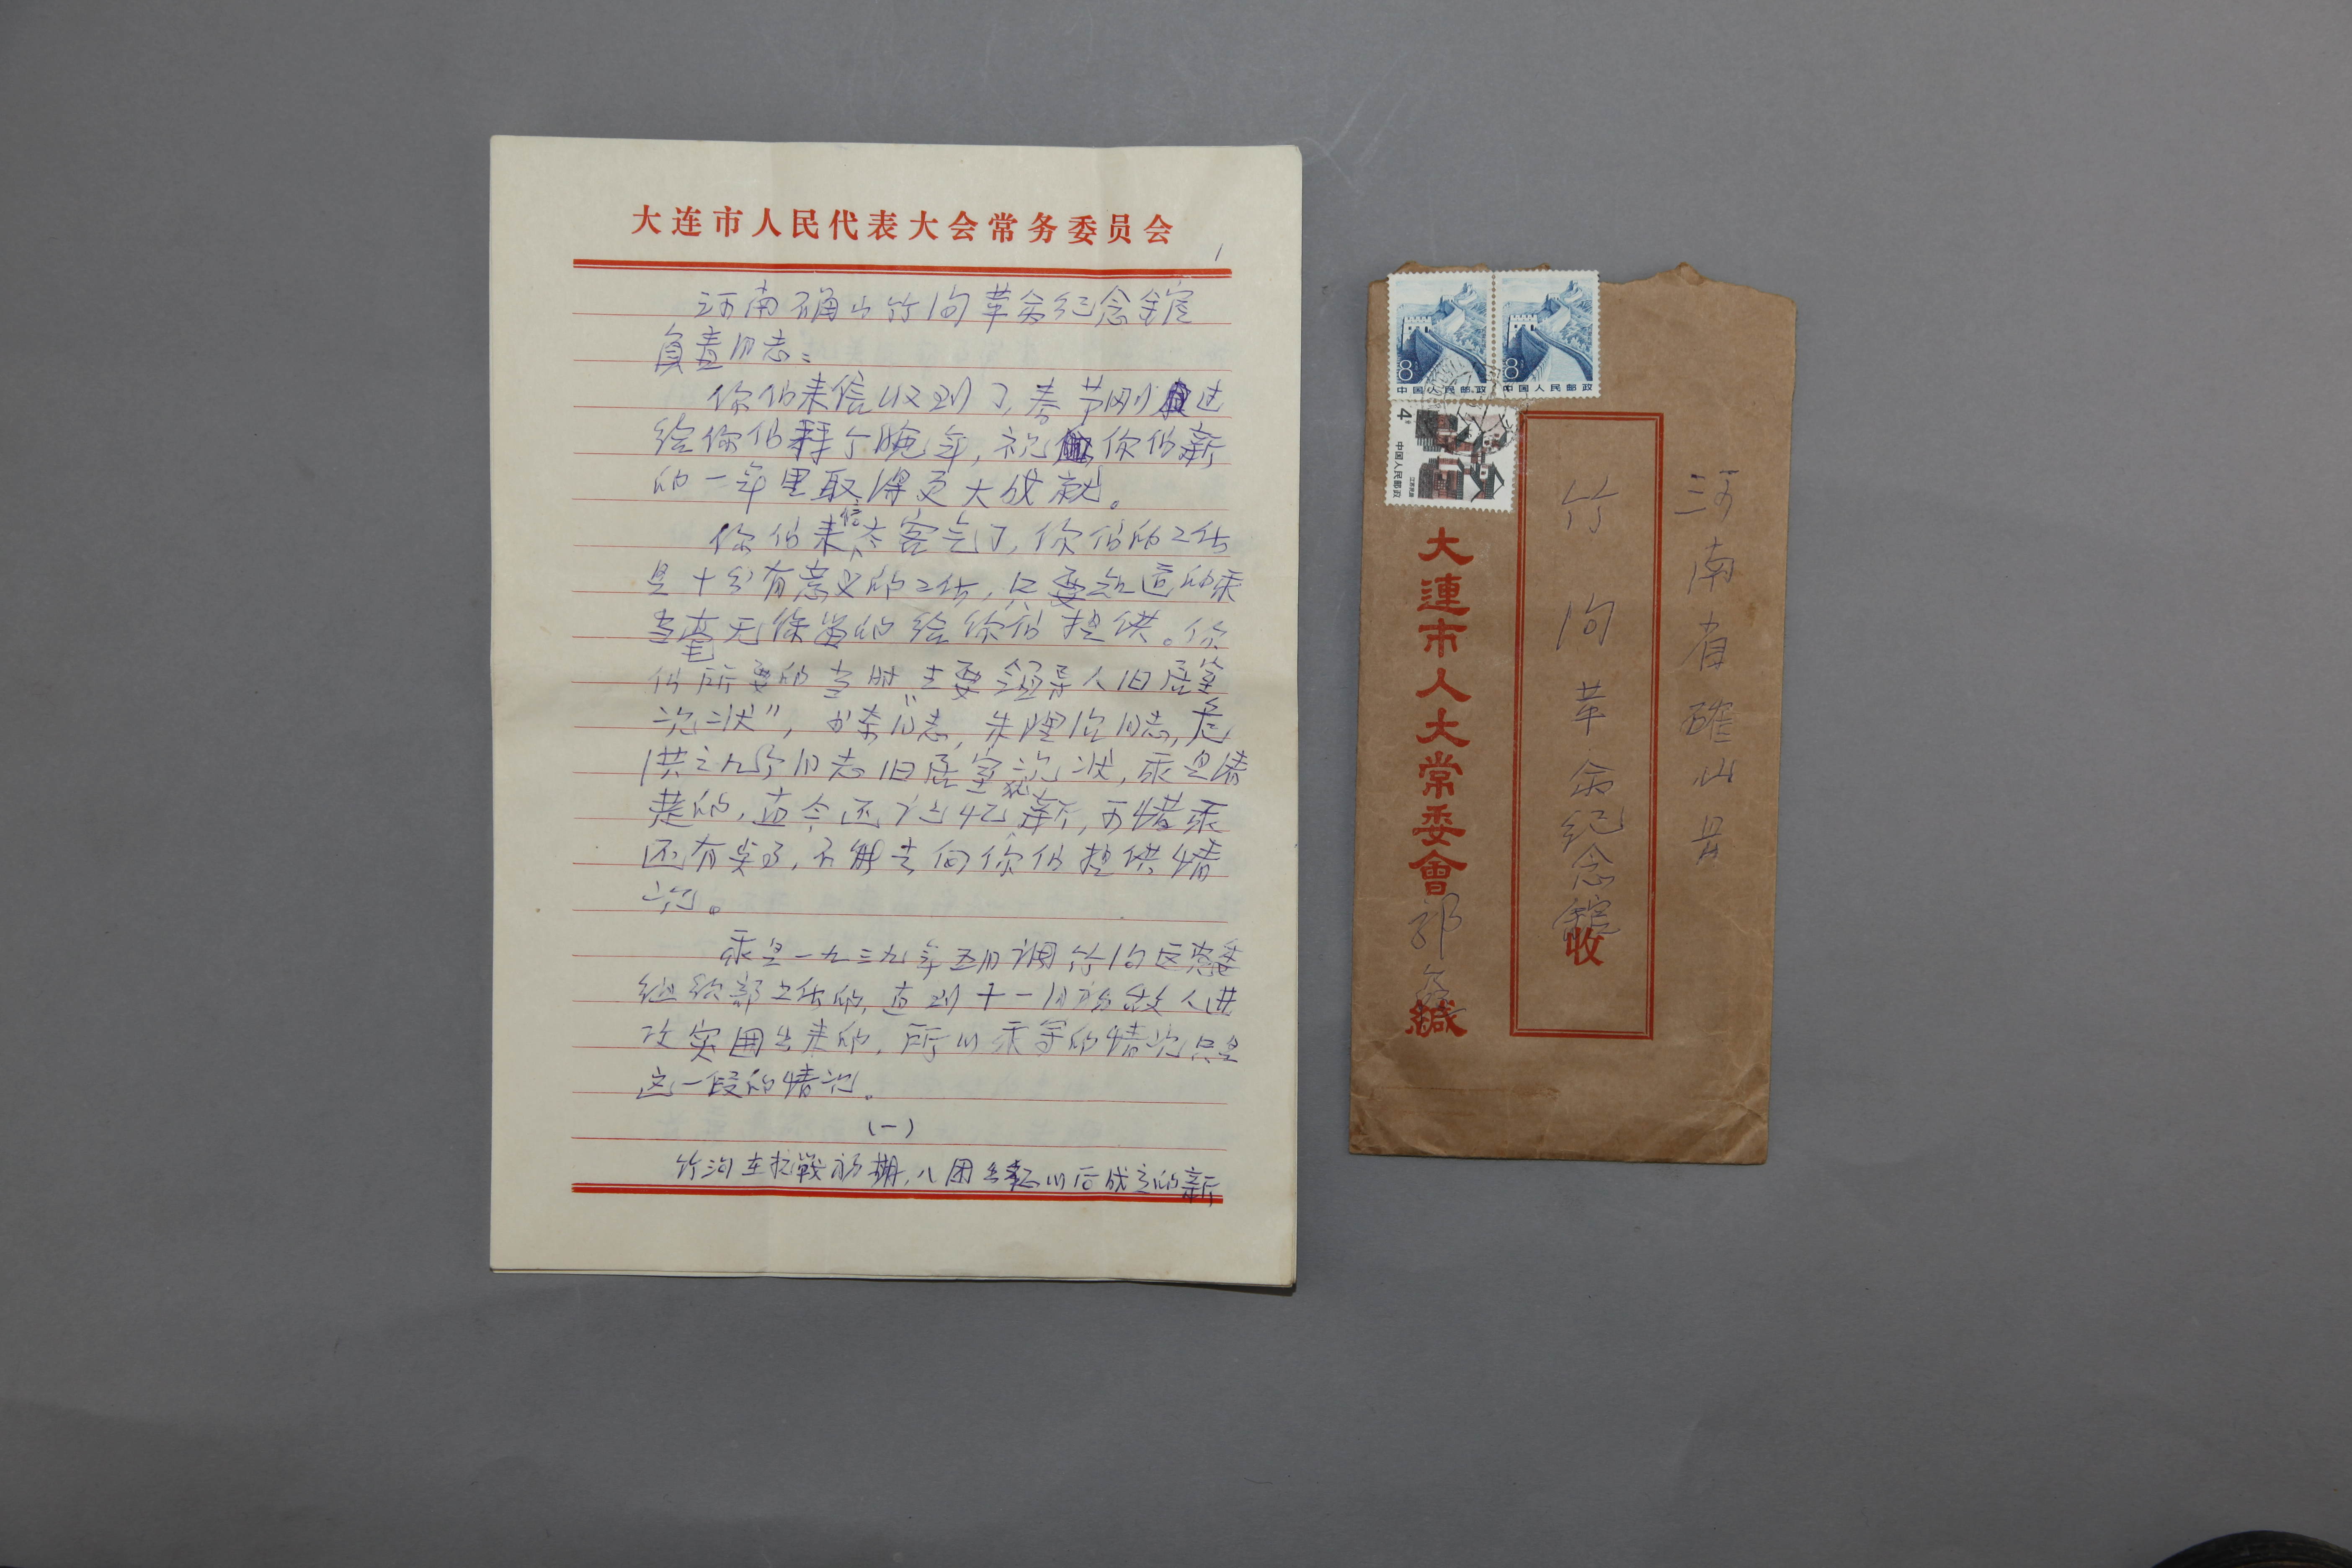 大连市人民代表大会常务委员会
1
河南确山竹沟革命纪念馆
负责同志：
你们来信收到了，春节刚过
给你们拜个晚年，祝你们新
的一年里取得更大成就。
你们来信太客气了，你们的工作
是十分有意义的工作，只要知道的我
当毫无保留的给你们提供。你
们所要的当时"主要领导人旧居室
况状"，少奇同志，朱理治同志，危
拱之几个同志旧居室况状，我是清
楚的，直今还记忆新，可惜我
还有病，不能去向你们提供情
况。
我是一九三九年五月调竹沟区党委
组织部工作的，直到十一月份敌人进
攻突围出来的，所以我写的情况只是
这一段的情况。
（一）
竹沟在抗战初期，八团出征以后成立的新
8
中国人民邮政
8
中国人民邮政
4分
中国人民邮政
河南省确山县
竹沟革命纪念馆
收
大連市人大常委會
郭
缄